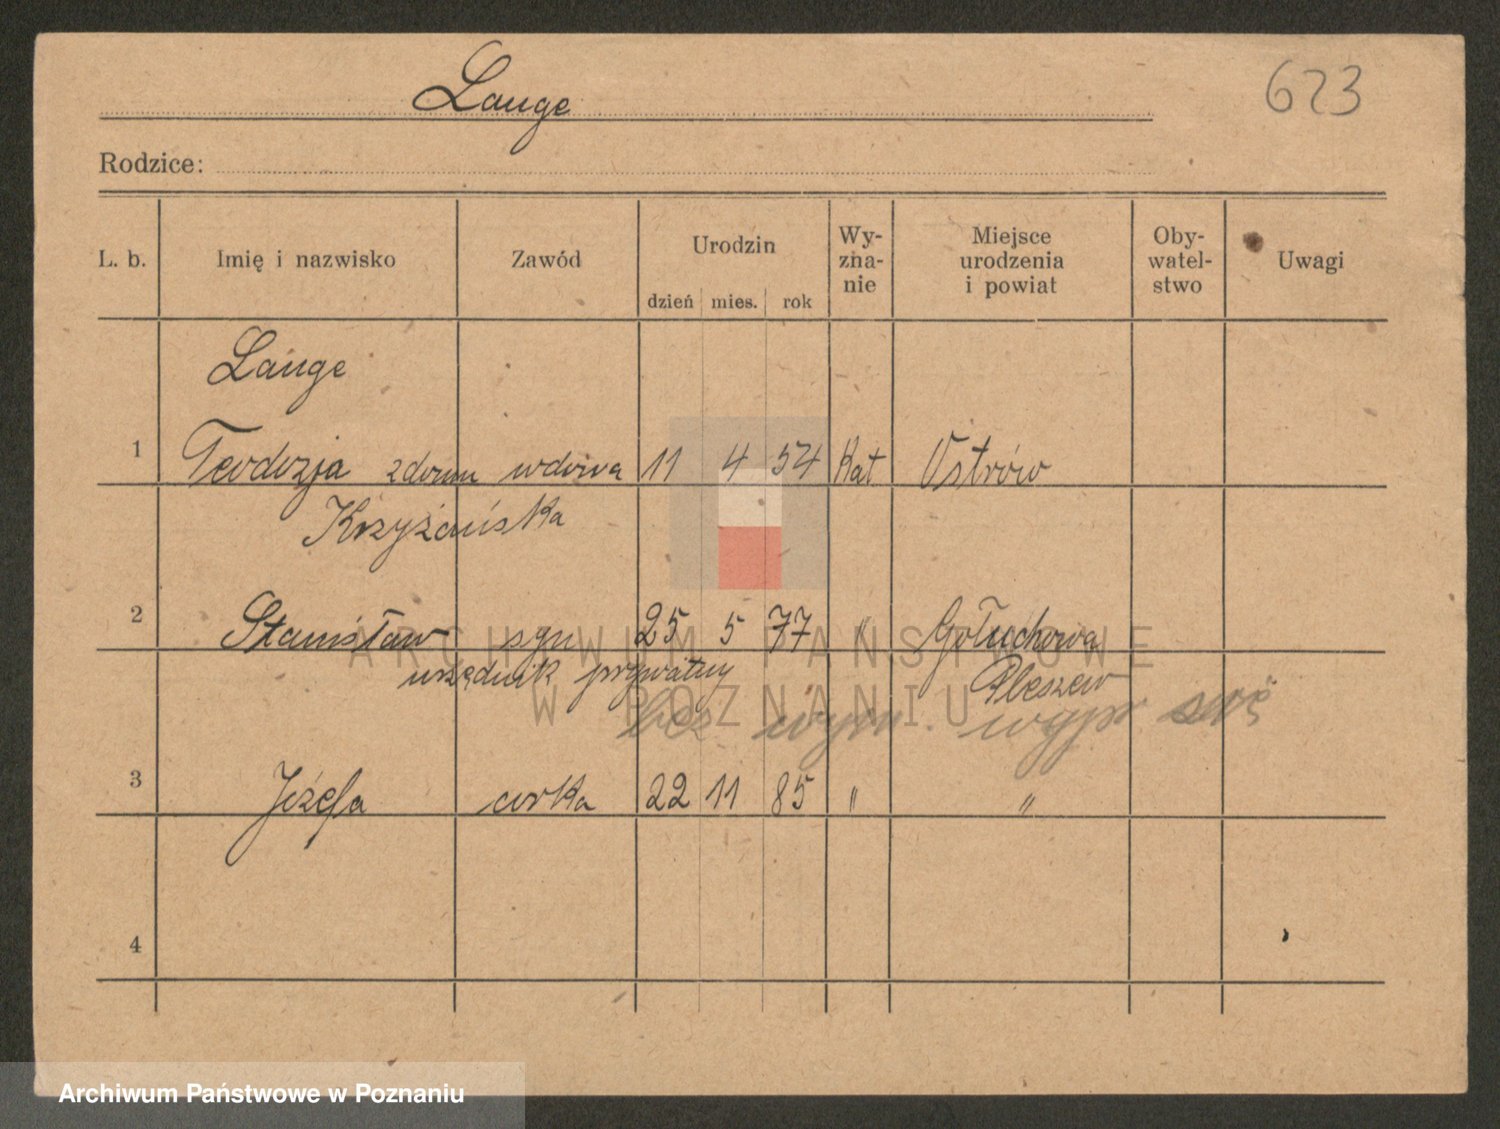 Lange 623
Rodzice:
L. b. Imię i nazwisko Zawód Urodzin dzień mies. rok Wy-zna-nie Miejsce urodzenia i powiat Oby-watel-stwo Uwagi
Lange
1 Teodozja z domu wdowa 11 4 54 Kat Ostrów
Krzyżańska
2 Stanisław syn 25 5 77 " Gołuchowa
urzędnik prywatny Pleszew
bez wym. wypr się
3 Józefa corka 22 11 85 " "
4
ARCHIWUM PAŃSTWOWE
W POZNANIU
Archiwum Państwowe w Poznaniu